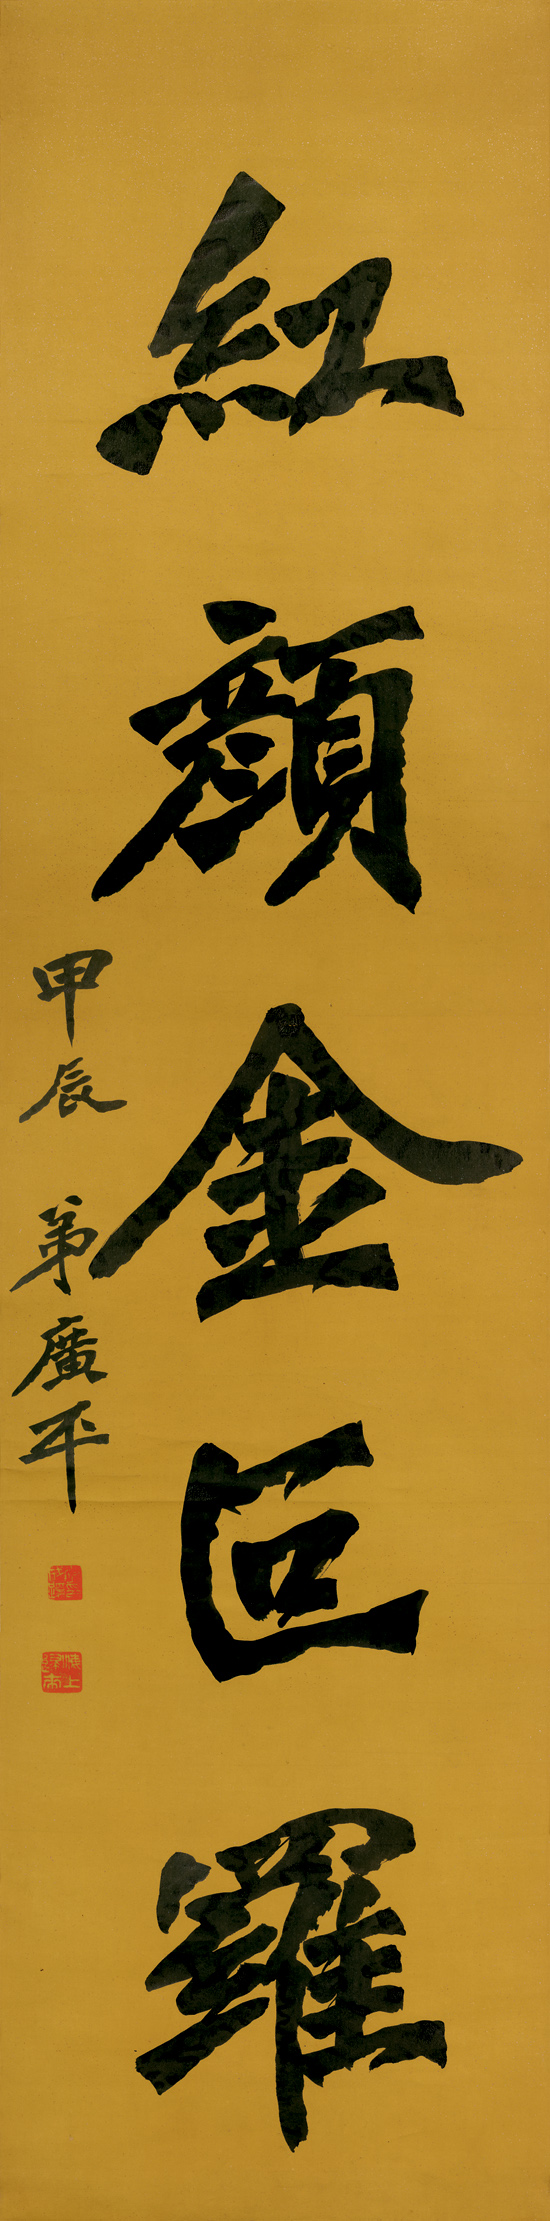 紅顏金叵羅
甲辰 弟廣平